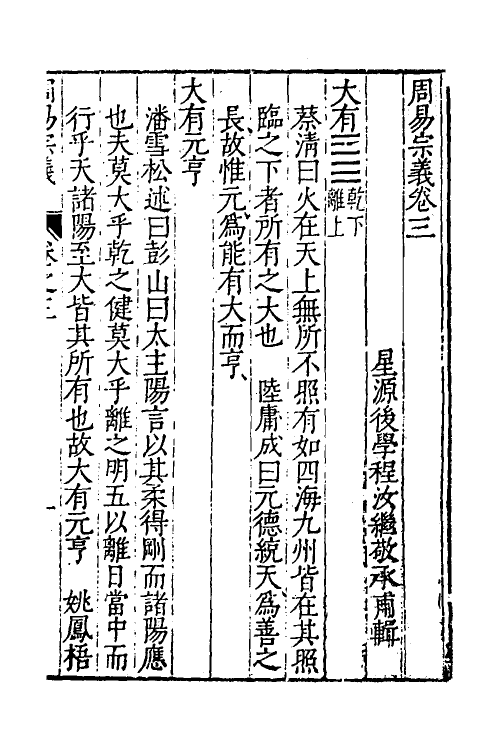 周易宗義卷三
星源後學程汝繼敬承甫輯
大有䷍乾下離上
蔡淸曰火在天上無所不照有如四海九州皆在其照
臨之下者所有之大也　陸庸成曰元德統天爲善之
長故惟元爲能有大而亨
大有元亨
潘雪松述曰彭山曰大主陽言以其柔得剛而諸陽應
也夫莫大乎乾之健莫大乎離之明五以離日當中而
行乎天諸陽至大皆其所有也故大有元亨　姚鳳梧
周易宗義　卷之三　一